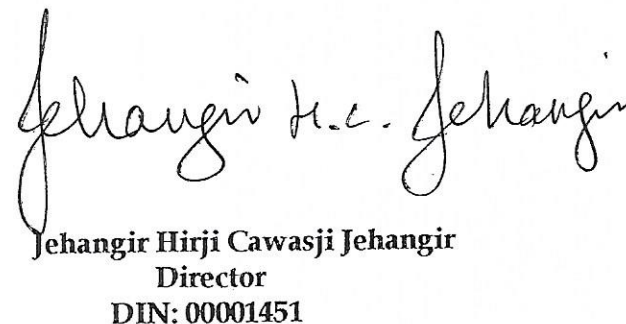 Jehangir H.C. Jehangir
Jehangir Hirji Cawasji Jehangir
Director
DIN: 00001451